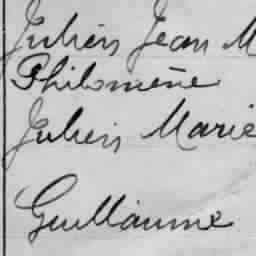 Julien Jean M
Philomène
Julien Marie
Guillaume